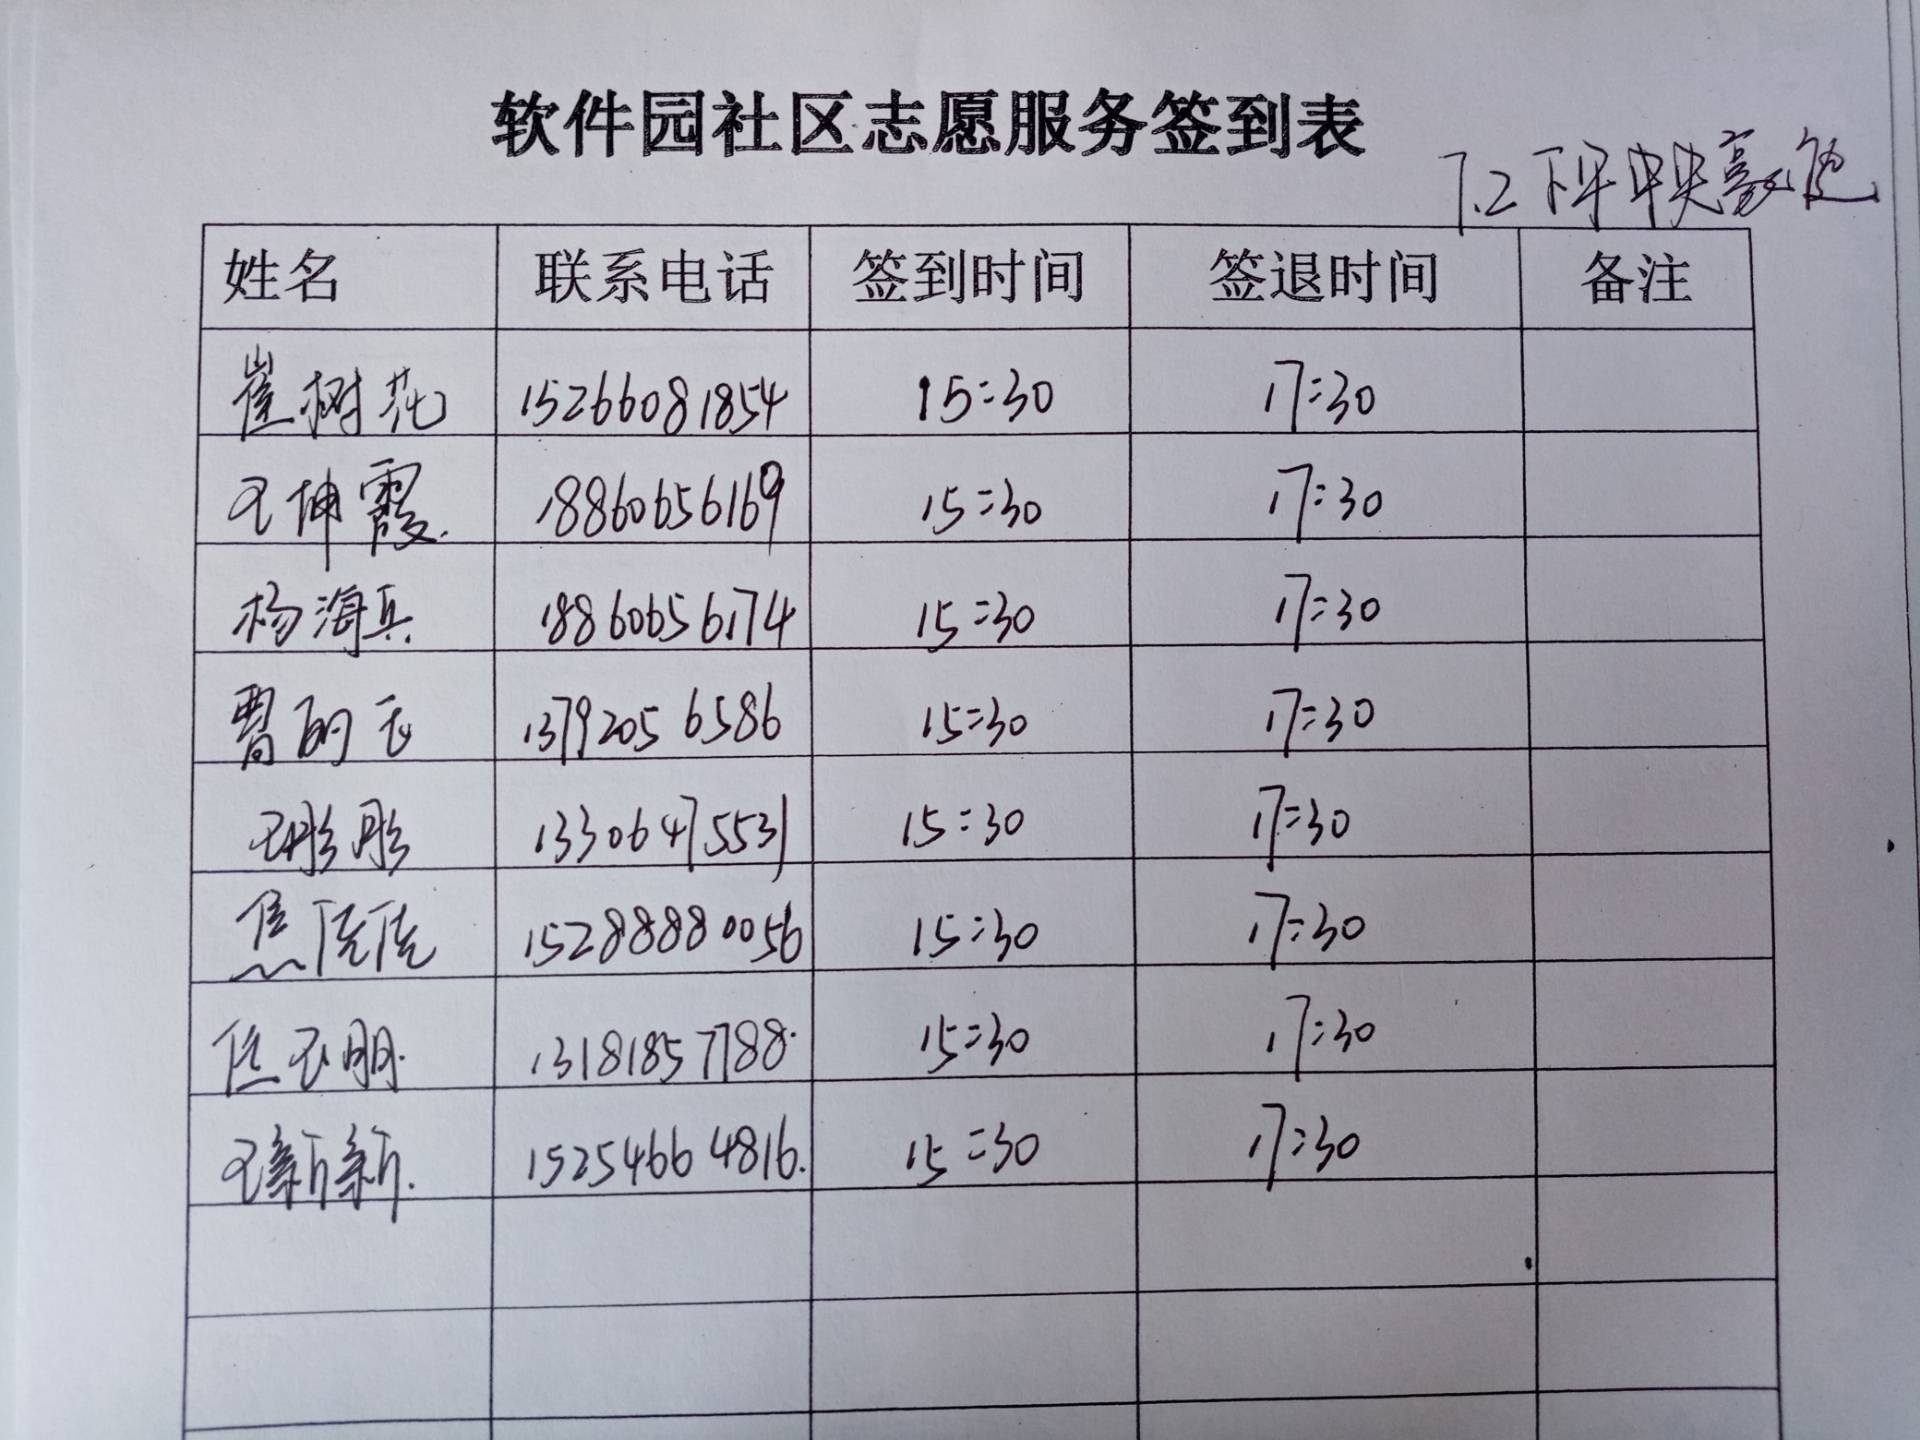 软件园社区志愿服务签到表
7.2下午中央豪庭
姓名 联系电话 签到时间 签退时间 备注
崔树花 15266081854 15:30 17:30
王坤霞 18860656169 15:30 17:30
杨海兵 18860656174 15:30 17:30
13792056586 15:30 17:30
王彤彤 13306475531 15:30 17:30
焦 15288880056 15:30 17:30
焦玉朋 13181857788 15:30 17:30
王新新 15254664816 15:30 17:30